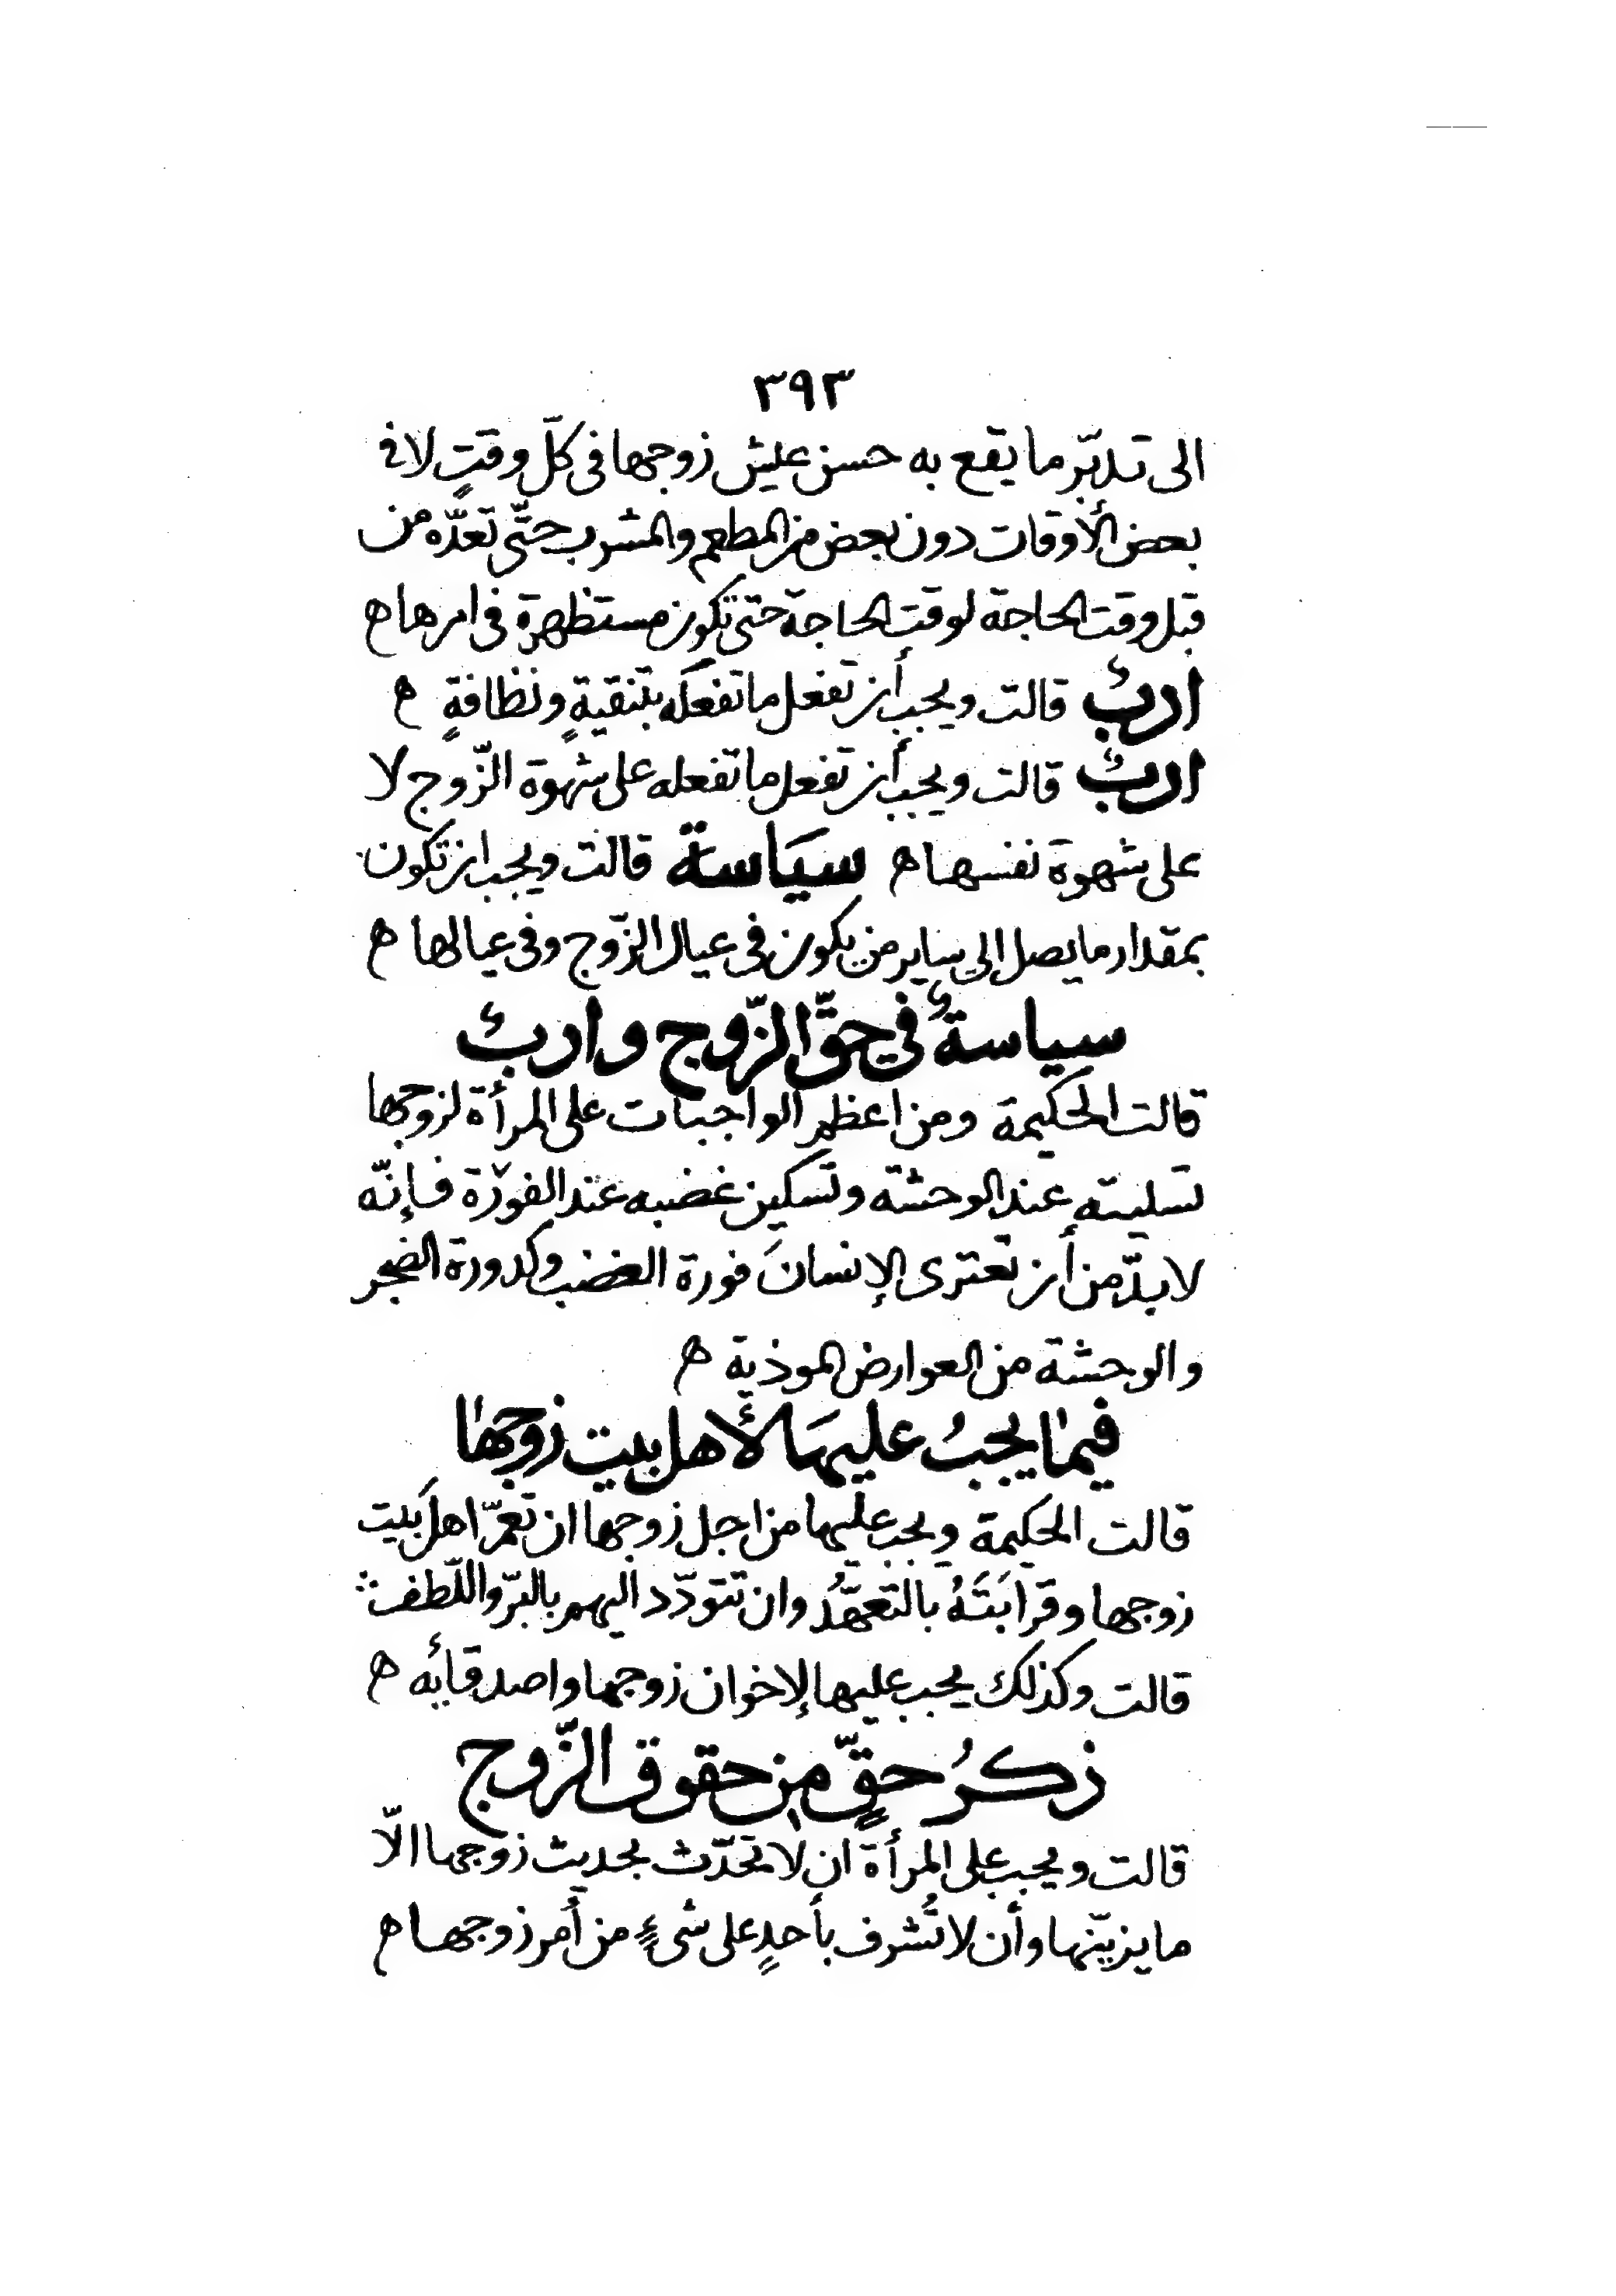 ٣٩٣
الى تدبّر ما يقع به حسن عيش زوجها فى كلّ وقتٍ لا فى
بعض الأوقات دون بعض من المطعم والمشرب حتّى تعدّه من
قبل وقت الحاجة لوقت الحاجة حتى تكون مستظهرة فى امرها ه
ادبٌ قالت ويجب أن تفعل ما تفعله بتنقيةٍ ونظافةٍ ه
ادبٌ قالت ويجب أن تفعل ما تفعله على شهوة الزّوج لا
على شهوة نفسها ه سيَاسة قالت ويجب ان تكون
بمقدار ما يصل الى ساير من يكون فى عيال الزّوج وفى عيالها ه
سياسةٌ في حقّ الزّوج وادبٌ
قالت الحكيمة ومن اعظم الواجبات على المرأة لزوجها
تسليته عند الوحشة وتسكين غضبه عند الفورة فإنّه
لا بدّ من أن تعترى الإنسانَ فورة الغضب وكدورة الضجر
والوحشة من العوارض الموذية ه
فيما يجبُ عليهَا لأهل بيت زوجها
قالت الحكيمة ويجب عليها من اجل زوجها ان تعمّ اهلَ بيت
زوجها وقرابَتَهُ بالتعهّدُ وان تتودّد اليهم بالبرّ واللّطف ؞
قالت وكذلك يجب عليها لإخوان زوجها واصدقائه ه
ذكرُ حقٍّ من حقوق الزّوج
قالت ويجب على المرأة ان لا تحدّث بحديث زوجها الّا
ما يزيّنها وأن لا تُشرف بأحدٍ على شىءٍ من أمر زوجها ه